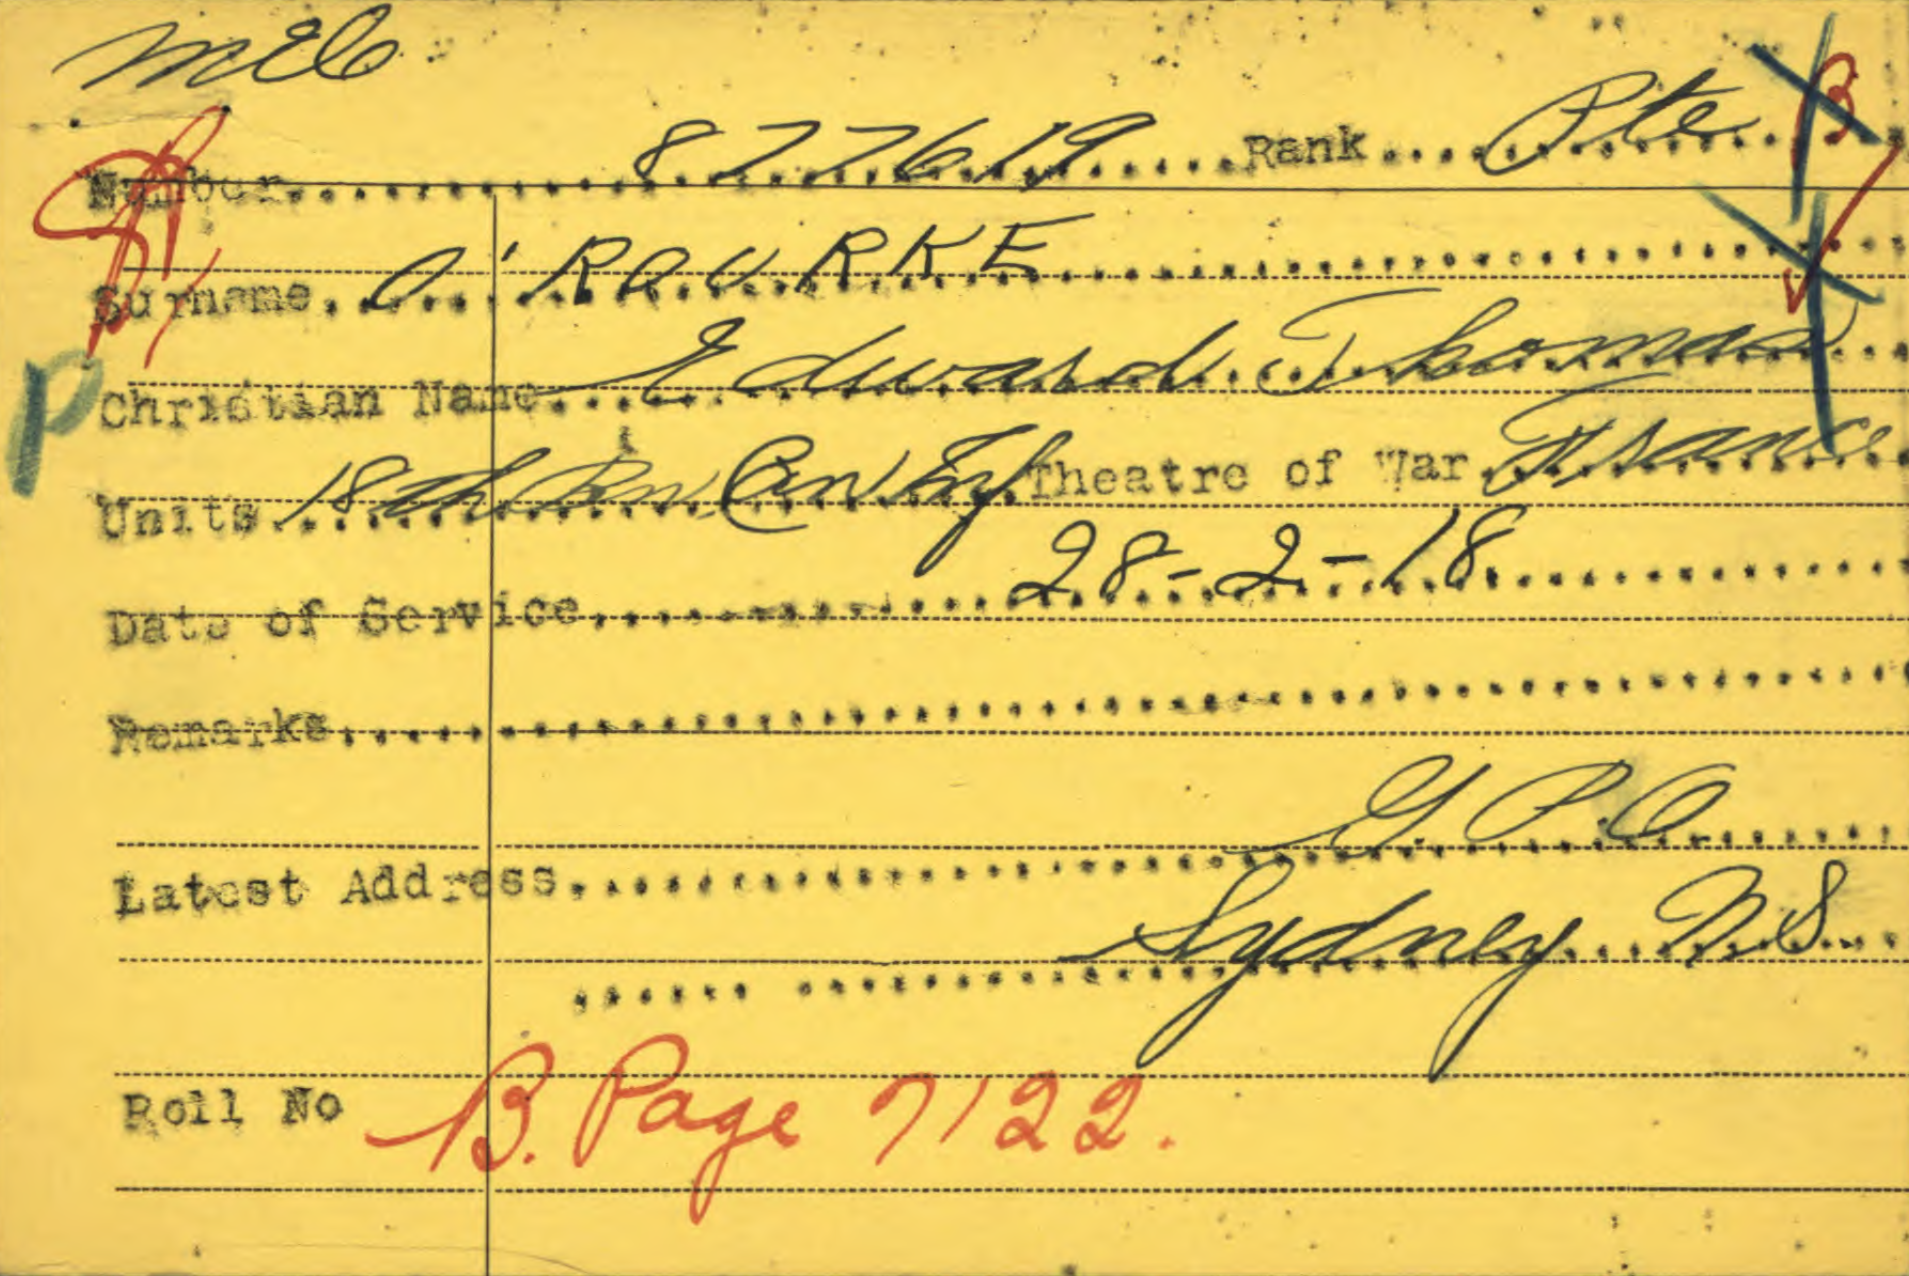 Number 877619 Rank Pte B
Surname O'ROURKE
Christian Name Edward Thomas
P
Units 18th Bn. Can Inf Theatre of War France
Date of Service 28-2-18
Remarks
Latest Address G P O
Sydney N S
Roll No B. Page 7122.